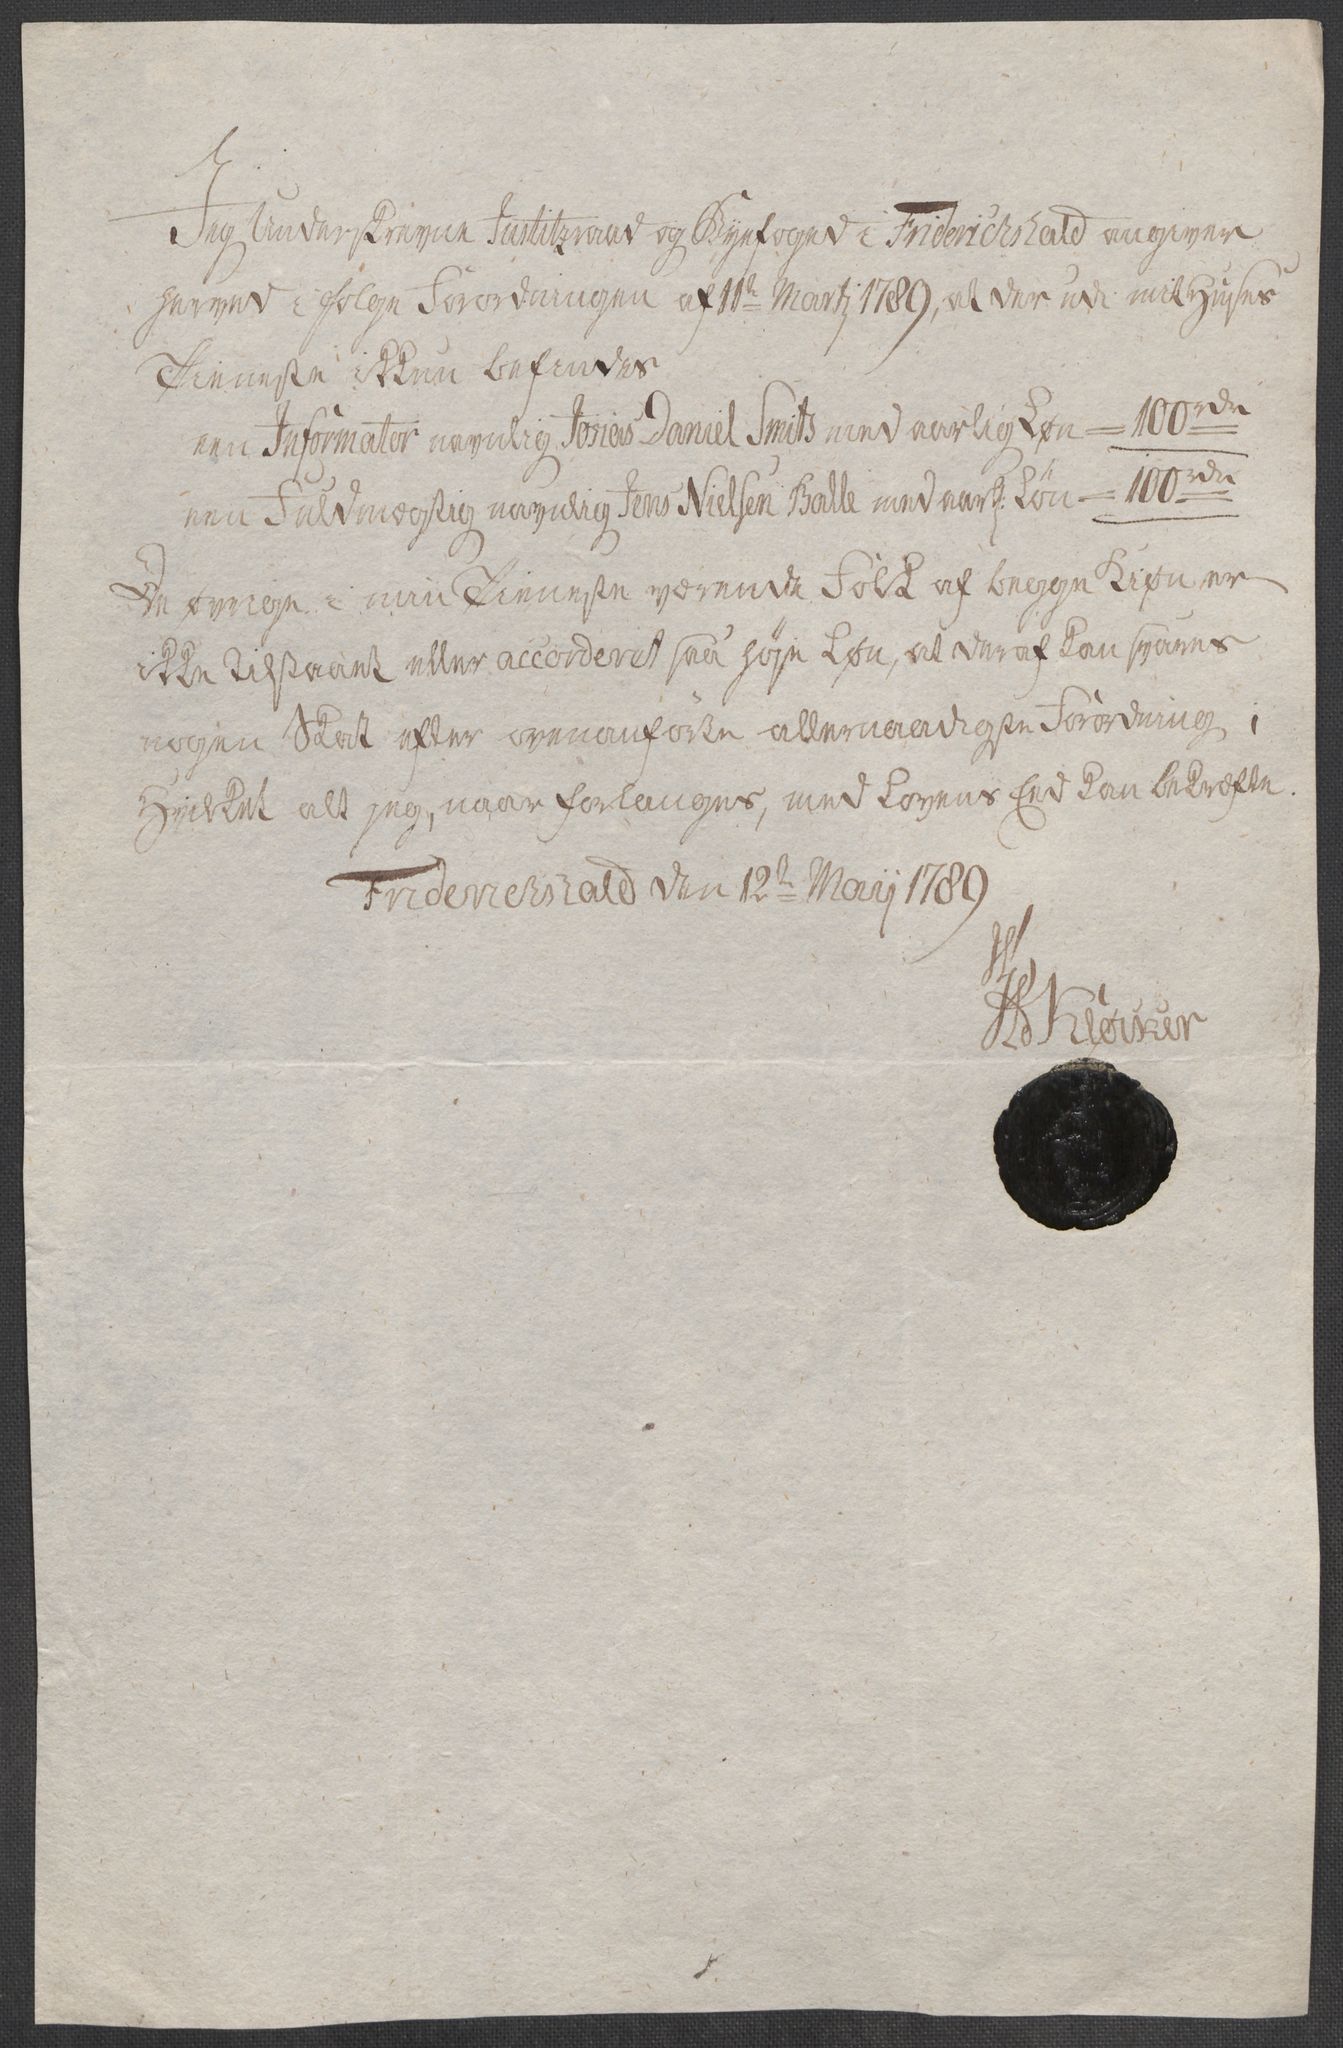 Jeg Underskrevne Justitzraad og Byefoged i Friderichshald angiver
herved i følge Forordningen af 11te Martj 1789, at der udi mit Huuses
Tieneste ikkun befindes
een Informator navnlig Jonas Daniel Smith med aarlig Løn = 100 rdr
een Fuldmægtig navnlig Jens Nielsen Balle med aarl: Løn = 100 rdr
De øvrige i min Tieneste værende Folk af begge Kiøn er
ikke tilstaaet eller accorderet saa høje Løn, at deraf kan svares
nogen Skat efter ovenanførte allernaadigste Forordning;
Hvilket alt jeg, naar forlanges, med Lovens Eed kan bekræfte.
Friderichshald den 12te Maij 1789
Kløcker